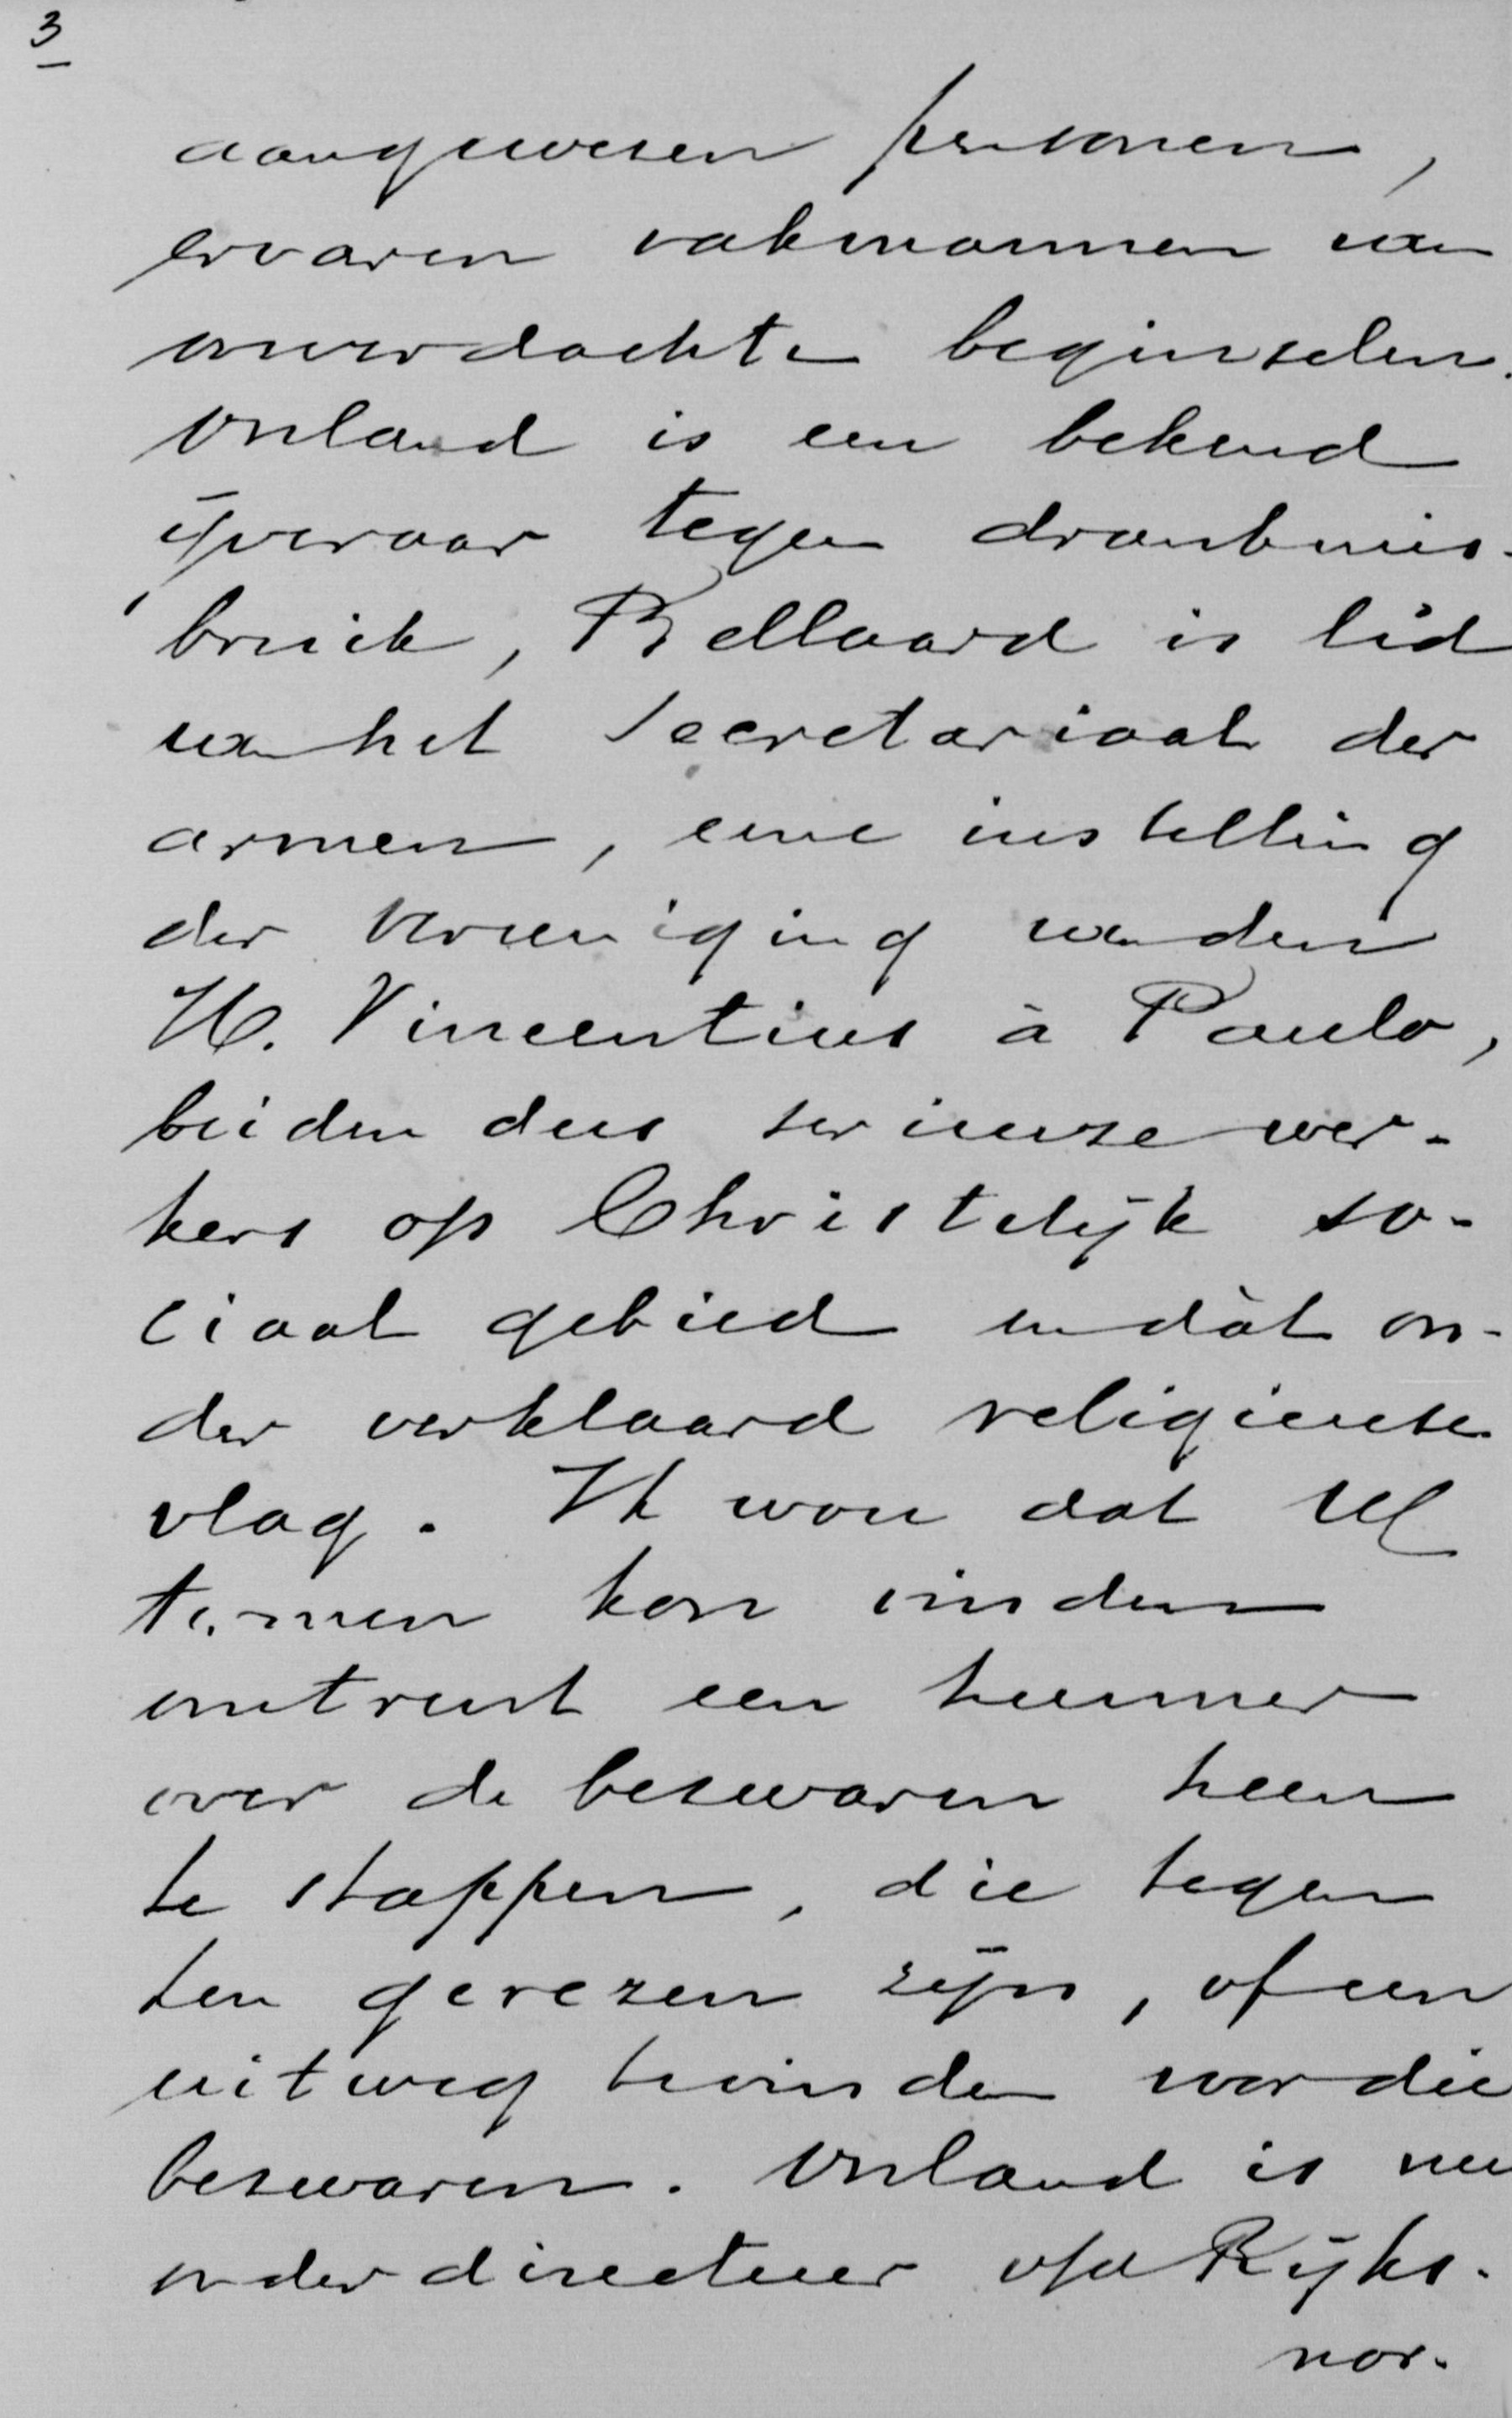 3
aangewezen personen,
ervaren vakmannen van
onverdachte beginselen.
Onland is een bekend
ijveraar tegen drankmis-
bruik, Bellaard is lid
van het Secretariaat der
armen, eene instelling
der Vereeniging van den
H. Vincentius à Paulo,
beiden dus serieuze wer-
kers op Christelijk so-
ciaal gebied en dàt on-
der verklaard religieuse
vlag. Ik wou dat U
termen kon vinden
omtrent een hunner
over de bezwaren heen
te stappen, die tegen
hen gerezen zijn, of een
uitweg te vinden voor die
bezwaren. Onland is nu
onderdirecteur v/d Rijks-
nor-